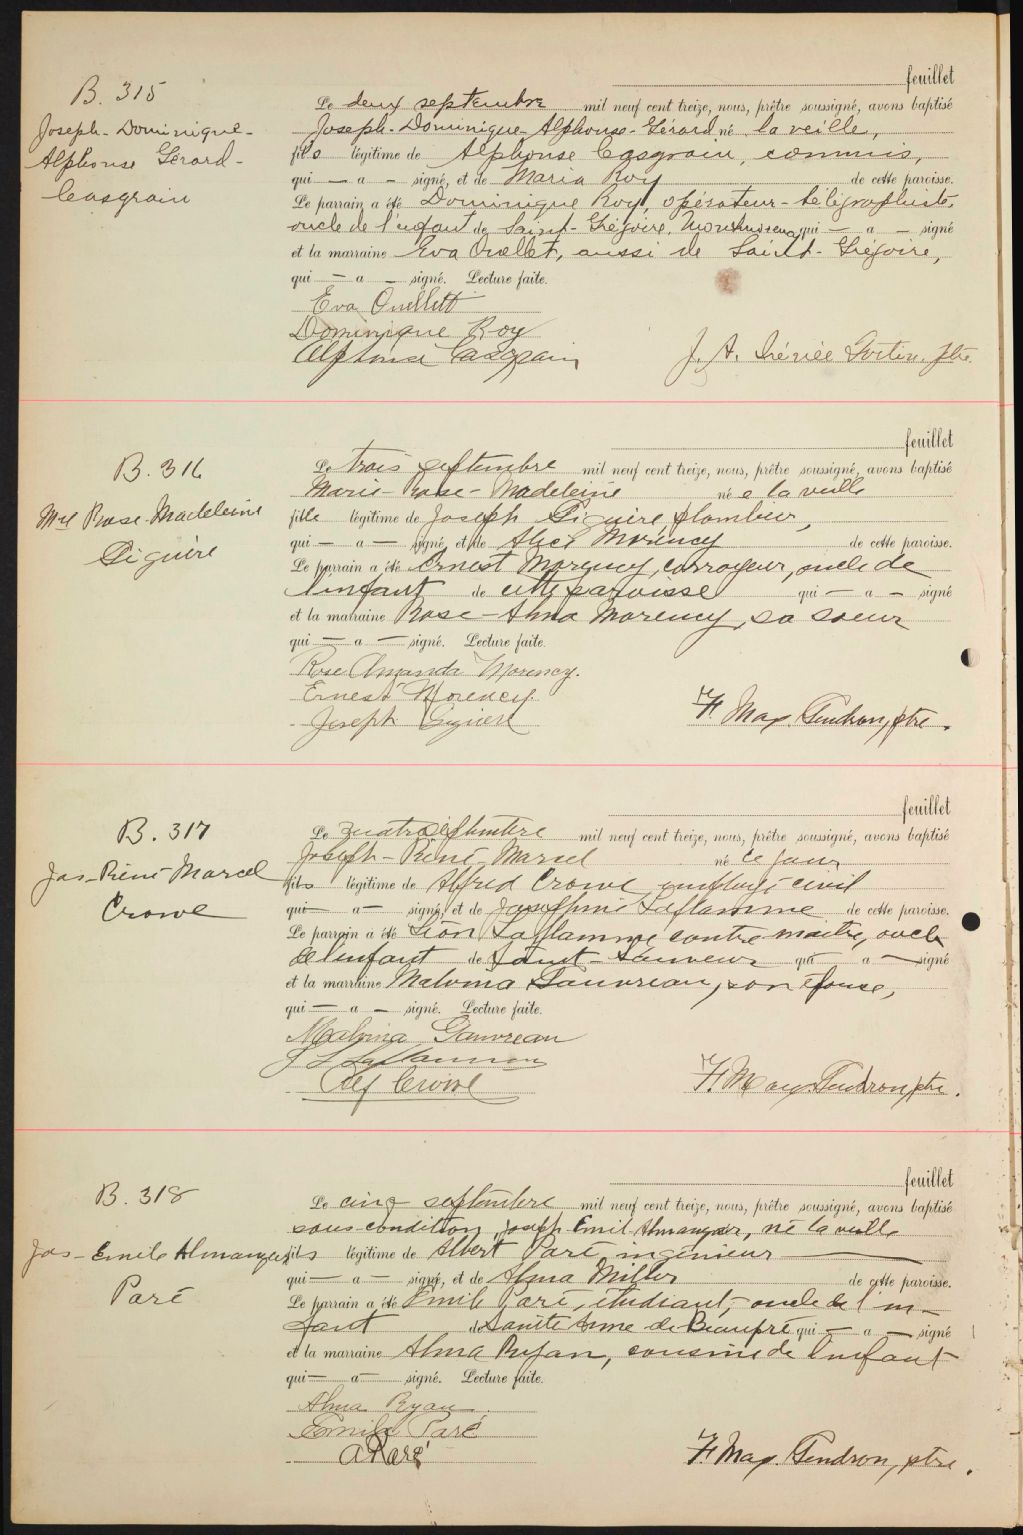 feuillet
B. 315
Joseph-Dominique-
Alphonse Gérard-
Casgrain
Le deux septembre mil neuf cent treize, nous, prêtre soussigné, avons baptisé
Joseph-Dominique-Alphonse-Gérard né la veille,
fils légitime de Alphonse Casgrain, commis,
qui — a — signé, et de Maria Roy de cette paroisse.
Le parrain a été Dominique Roy, opérateur-télégraphiste,
oncle de l'enfant de Saint-Grégoire, Montmorency qui — a — signé
et la marraine Eva Ouellet, aussi de Saint-Grégoire,
qui — a — signé. Lecture faite.
Eva Ouellett
Dominique Roy
Alphonse Casgrain
J. A. Irénée Fortin, ptre.
feuillet
B. 316
Mie Rose-Madeleine
Giguère
Le trois septembre mil neuf cent treize, nous, prêtre soussigné, avons baptisé
Marie-Rose-Madeleine née la veille
fille légitime de Joseph Giguère, plombier,
qui — a — signé, et de Alice Morency de cette paroisse.
Le parrain a été Ernest Morency, corroyeur, oncle de
l'enfant de cette paroisse qui — a — signé
et la marraine Rose-Anna Morency, sa soeur
qui — a — signé. Lecture faite.
Rose Amanda Morency.
Ernest Morency
Joseph Giguère
F. Max. Gendron, ptre.
feuillet
B. 317
Jos-René Marcel
Crowe
Le quatre septembre mil neuf cent treize, nous, prêtre soussigné, avons baptisé
Joseph-René-Marcel né ce jour
fils légitime de Alfred Crowe employé civil
qui — a — signé, et de Josephine Laflamme de cette paroisse.
Le parrain a été Léon Laflamme contre maitre, oncle
de l'enfant de Saint-Sauveur qui a — signé
et la marraine Malvina Gauvreau, son épouse,
qui — a — signé. Lecture faite.
Malvina Gauvreau
J L Laflamme
Alf Crowe
F. Max. Gendron, ptre.
feuillet
B. 318
Jos-Emile Almanzar
Paré
Le cinq septembre mil neuf cent treize, nous, prêtre soussigné, avons baptisé
sous condition, Joseph Emil Almanzar, né la veille
fils légitime de Albert Paré, ingénieur
qui — a — signé, et de Alma Miller de cette paroisse.
Le parrain a été Emile Paré, étudiant, oncle de l'en-
fant de Sainte Anne de Beaupré qui — a — signé
et la marraine Alma Ryan, cousine de l'enfant
qui — a — signé. Lecture faite.
Alma Ryan
Emile Paré
A Paré
F. Max. Gendron, ptre.